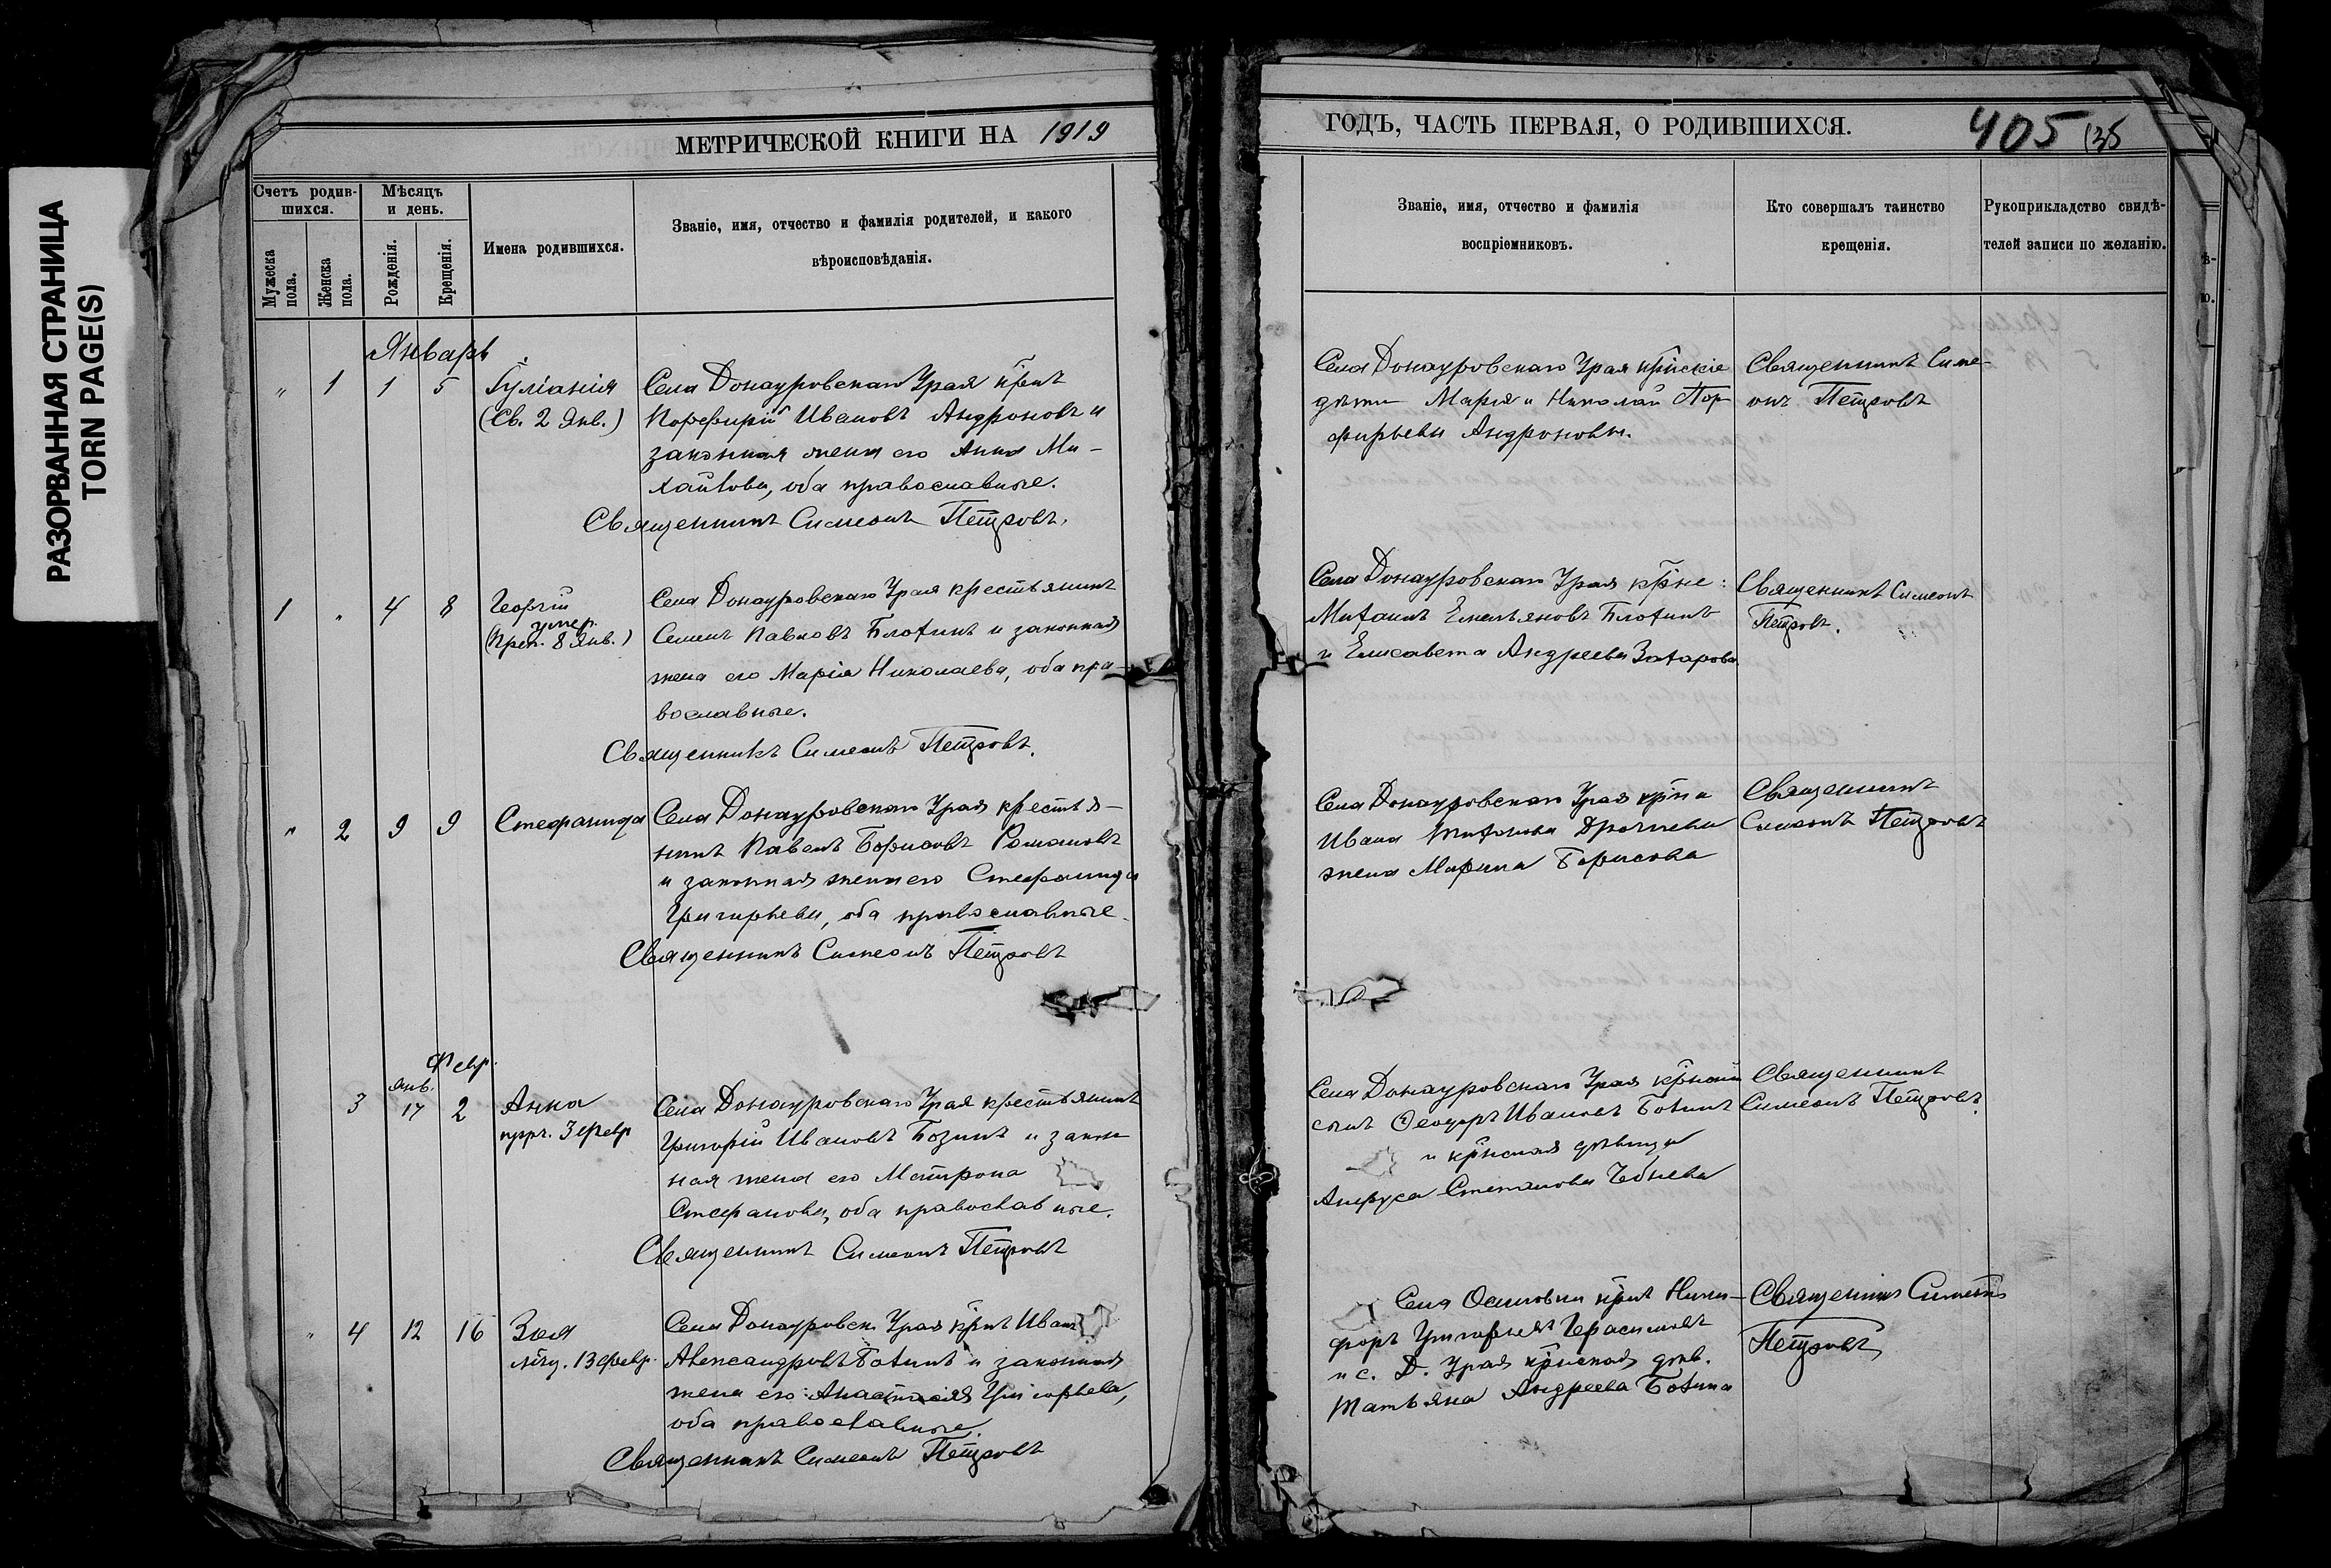 РАЗОРВАННАЯ СТРАНИЦА
TORN PAGE(S)
МЕТРИЧЕСКОЙ КНИГИ НА 1919
Счетъ родив-
шихся.
Мѣсяцъ
и день.
Мужеска
пола.
Женска
пола.
Рожденія.
Крещенія.
Имена родившихся.
Званіе, имя, отчество и фамилія родителей, и какого
вѣроисповѣданія.
Январь
" 1 1 5 Іуліанія Села Донауровскаго Урая
(Св. 2 Янв.) Порфирій Ивановъ Андроновъ и
законная жена его Анна Ми-
хайлова, оба православные.
Священникъ Симеонъ Петровъ.
1 " 4 8 Георгій Села Донауровскаго Урая крестьянинъ
умер.
(Преп. 8 Янв.) Семенъ Павловъ Блохинъ и законная
жена его Марія Николаева, оба пра-
вославные.
Священникъ Симеонъ Петровъ.
" 2 9 9 Стефанида Села Донауровскаго Урая крестья-
нинъ Павелъ Борисовъ Романовъ
и законная жена его Стефанида
Григорьева, оба православные.
Священникъ Симеонъ Петровъ
Февр.
Янв.
3 17 2 Анна Села Донауровскаго Урая крестьянинъ
прр. 3 февр Григорій Ивановъ Бозинъ и закон
ная жена его Матрона
Стефанова, оба православные.
Священникъ Симеонъ Петровъ
" 4 12 16 Зоя Села Донауровск. Урая крнъ Иванъ
мчц. 13 февр. Александровъ Бохинъ и законная
жена его Анастасія Григорьева,
оба православные.
Священникъ Симеонъ Петровъ
ГОДЪ, ЧАСТЬ ПЕРВАЯ, О РОДИВШИХСЯ.
405
Званіе, имя, отчество и фамилія
воспріемниковъ.
Кто совершалъ таинство
крещенія.
Рукоприкладство свидѣ-
телей записи по желанію.
Села Донауровскаго Урая Священникъ Симе-
дѣти Марія и Николай Пор онъ Петровъ
фирьевы Андроновы.
Села Донауровскаго Урая кр̃не: Священникъ Симеонъ
Михаилъ Емельяновъ Блохинъ Петровъ.
и Елисавета Андреева Захарова
Села Донауровскаго Урая кр̃на Священникъ
Ивана Симеонъ Петровъ
жена Марина Борисова
Села Донауровскаго Урая Священникъ
сынъ Ѳеодоръ Ивановъ Бохинъ Симеонъ Петровъ.
и кр̃нская дѣвица
Анфуса Степанова
Села Осиновки кр̃нъ Ники- Священникъ Симеонъ
форъ Григорьевъ Герасимовъ Петровъ
и с. Д. Урая кр̃нская дѣв.
Татьяна Андреева Бохина